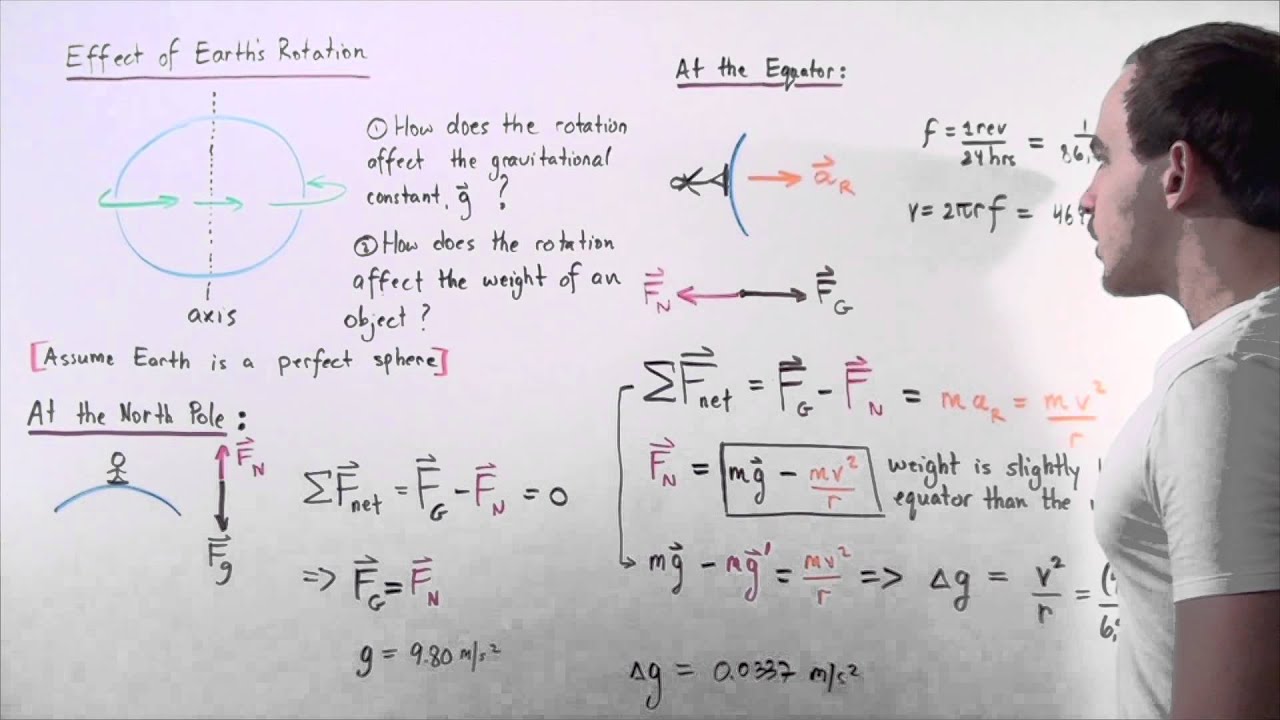 Effect of Earth's Rotation
① How does the rotation
affect the gravitational
constant, g⃗ ?
② How does the rotation
affect the weight of an
object?
axis
[Assume Earth is a perfect sphere]
At the North Pole:
F⃗_N
F⃗_g
ΣF⃗_net = F⃗_G - F⃗_N = 0
=> F⃗_G = F⃗_N
g = 9.80 m/s²
At the Equator:
a⃗_R
f = 1rev/24hrs = 1/86,
v = 2πrf = 464
F⃗_N F⃗_G
ΣF⃗_net = F⃗_G - F⃗_N = m a_R = mv²/r
F⃗_N = mg⃗ - mv²/r
weight is slightly
equator than the
mg⃗ - mg⃗' = mv²/r => Δg = v²/r =
Δg = 0.0337 m/s²